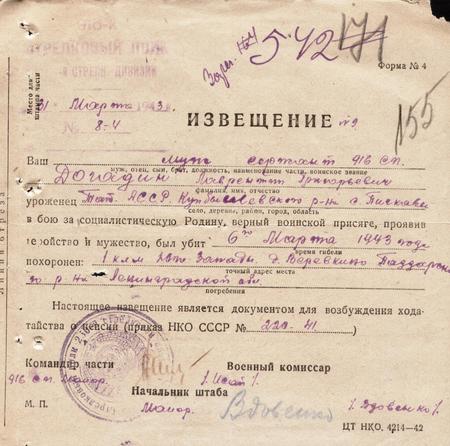 916-й
СТРЕЛКОВЫЙ ПОЛК
-й СТРЕЛК. ДИВИЗИИ
542
171
Место для штампа части
Форма № 4
31 Марта 1943 г.
№ 8-4
155
ИЗВЕЩЕНИЕ № 9
Ваш муж сержант 916 сп.
муж, отец, сын, брат, должность, наименование части, воинское звание
Догадин Лаврентий Григорьевич
фамилия, имя, отчество
уроженец Тат. АССР Куйбышевского р-н с.
село, деревня, район, город, область
в бою за социалистическую Родину, верный воинской присяге, проявив
геройство и мужество, был убит 6го Марта 1943 года
время гибели
похоронен: 1 клм Юго Запад. д. Веревкино
точный адрес места
го р-на Ленинградской обл.
погребения
Настоящее извещение является документом для возбуждения хода-
тайства о пенсии (приказ НКО СССР № 220-41)
Командир части
Военный комиссар
916 сп. Майор.
Начальник штаба
М. П.
Майор.
Вдовенко
/Вдовенко/
ЦТ НКО. 4214-42
Линия отреза